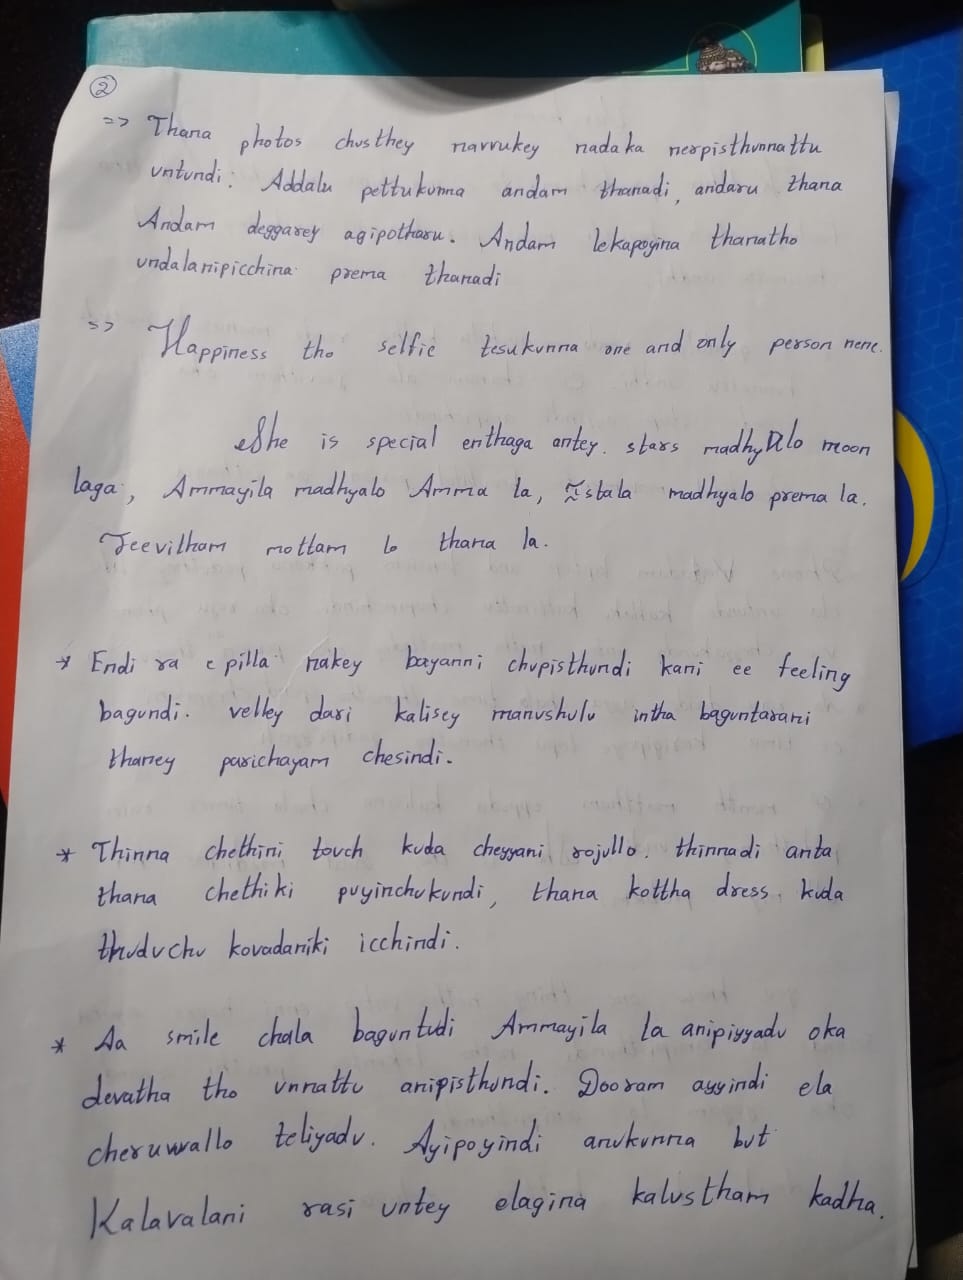 ②
=> Thana photos chusthey navvukey nadaka nerpisthunnattu
untundi. Addalu pettukunna andam thanadi, andaru thana
Andam deggarey agipotharu. Andam lekapoyina thanatho
undalanipicchina prema thanadi
=> Happiness tho selfie tesukunna one and only person nene.
She is special enthaga antey. stars madhyalo moon
laga, Ammayila madhyalo Amma la, Istala madhyalo prema la.
Jeevitham mottam lo thana la.
* Endi ra e pilla nakey bayanni chupisthundi kani ee feeling
bagundi. velley dari kalisey manushulu intha baguntarani
thaney parichayam chesindi.
* Thinna chethini touch kuda cheyyani rojullo. thinnadi anta
thana chethiki puyinchukundi, thana kottha dress kuda
thuduchu kovadaniki icchindi.
* Aa smile chala baguntudi Ammayila la anipiyyadu oka
devatha tho unnattu anipisthundi. Dooram ayyindi ela
cheruvvallo teliyadu. Ayipoyindi anukunna but
Kalavalani rasi untey elagina kalustham kadha.